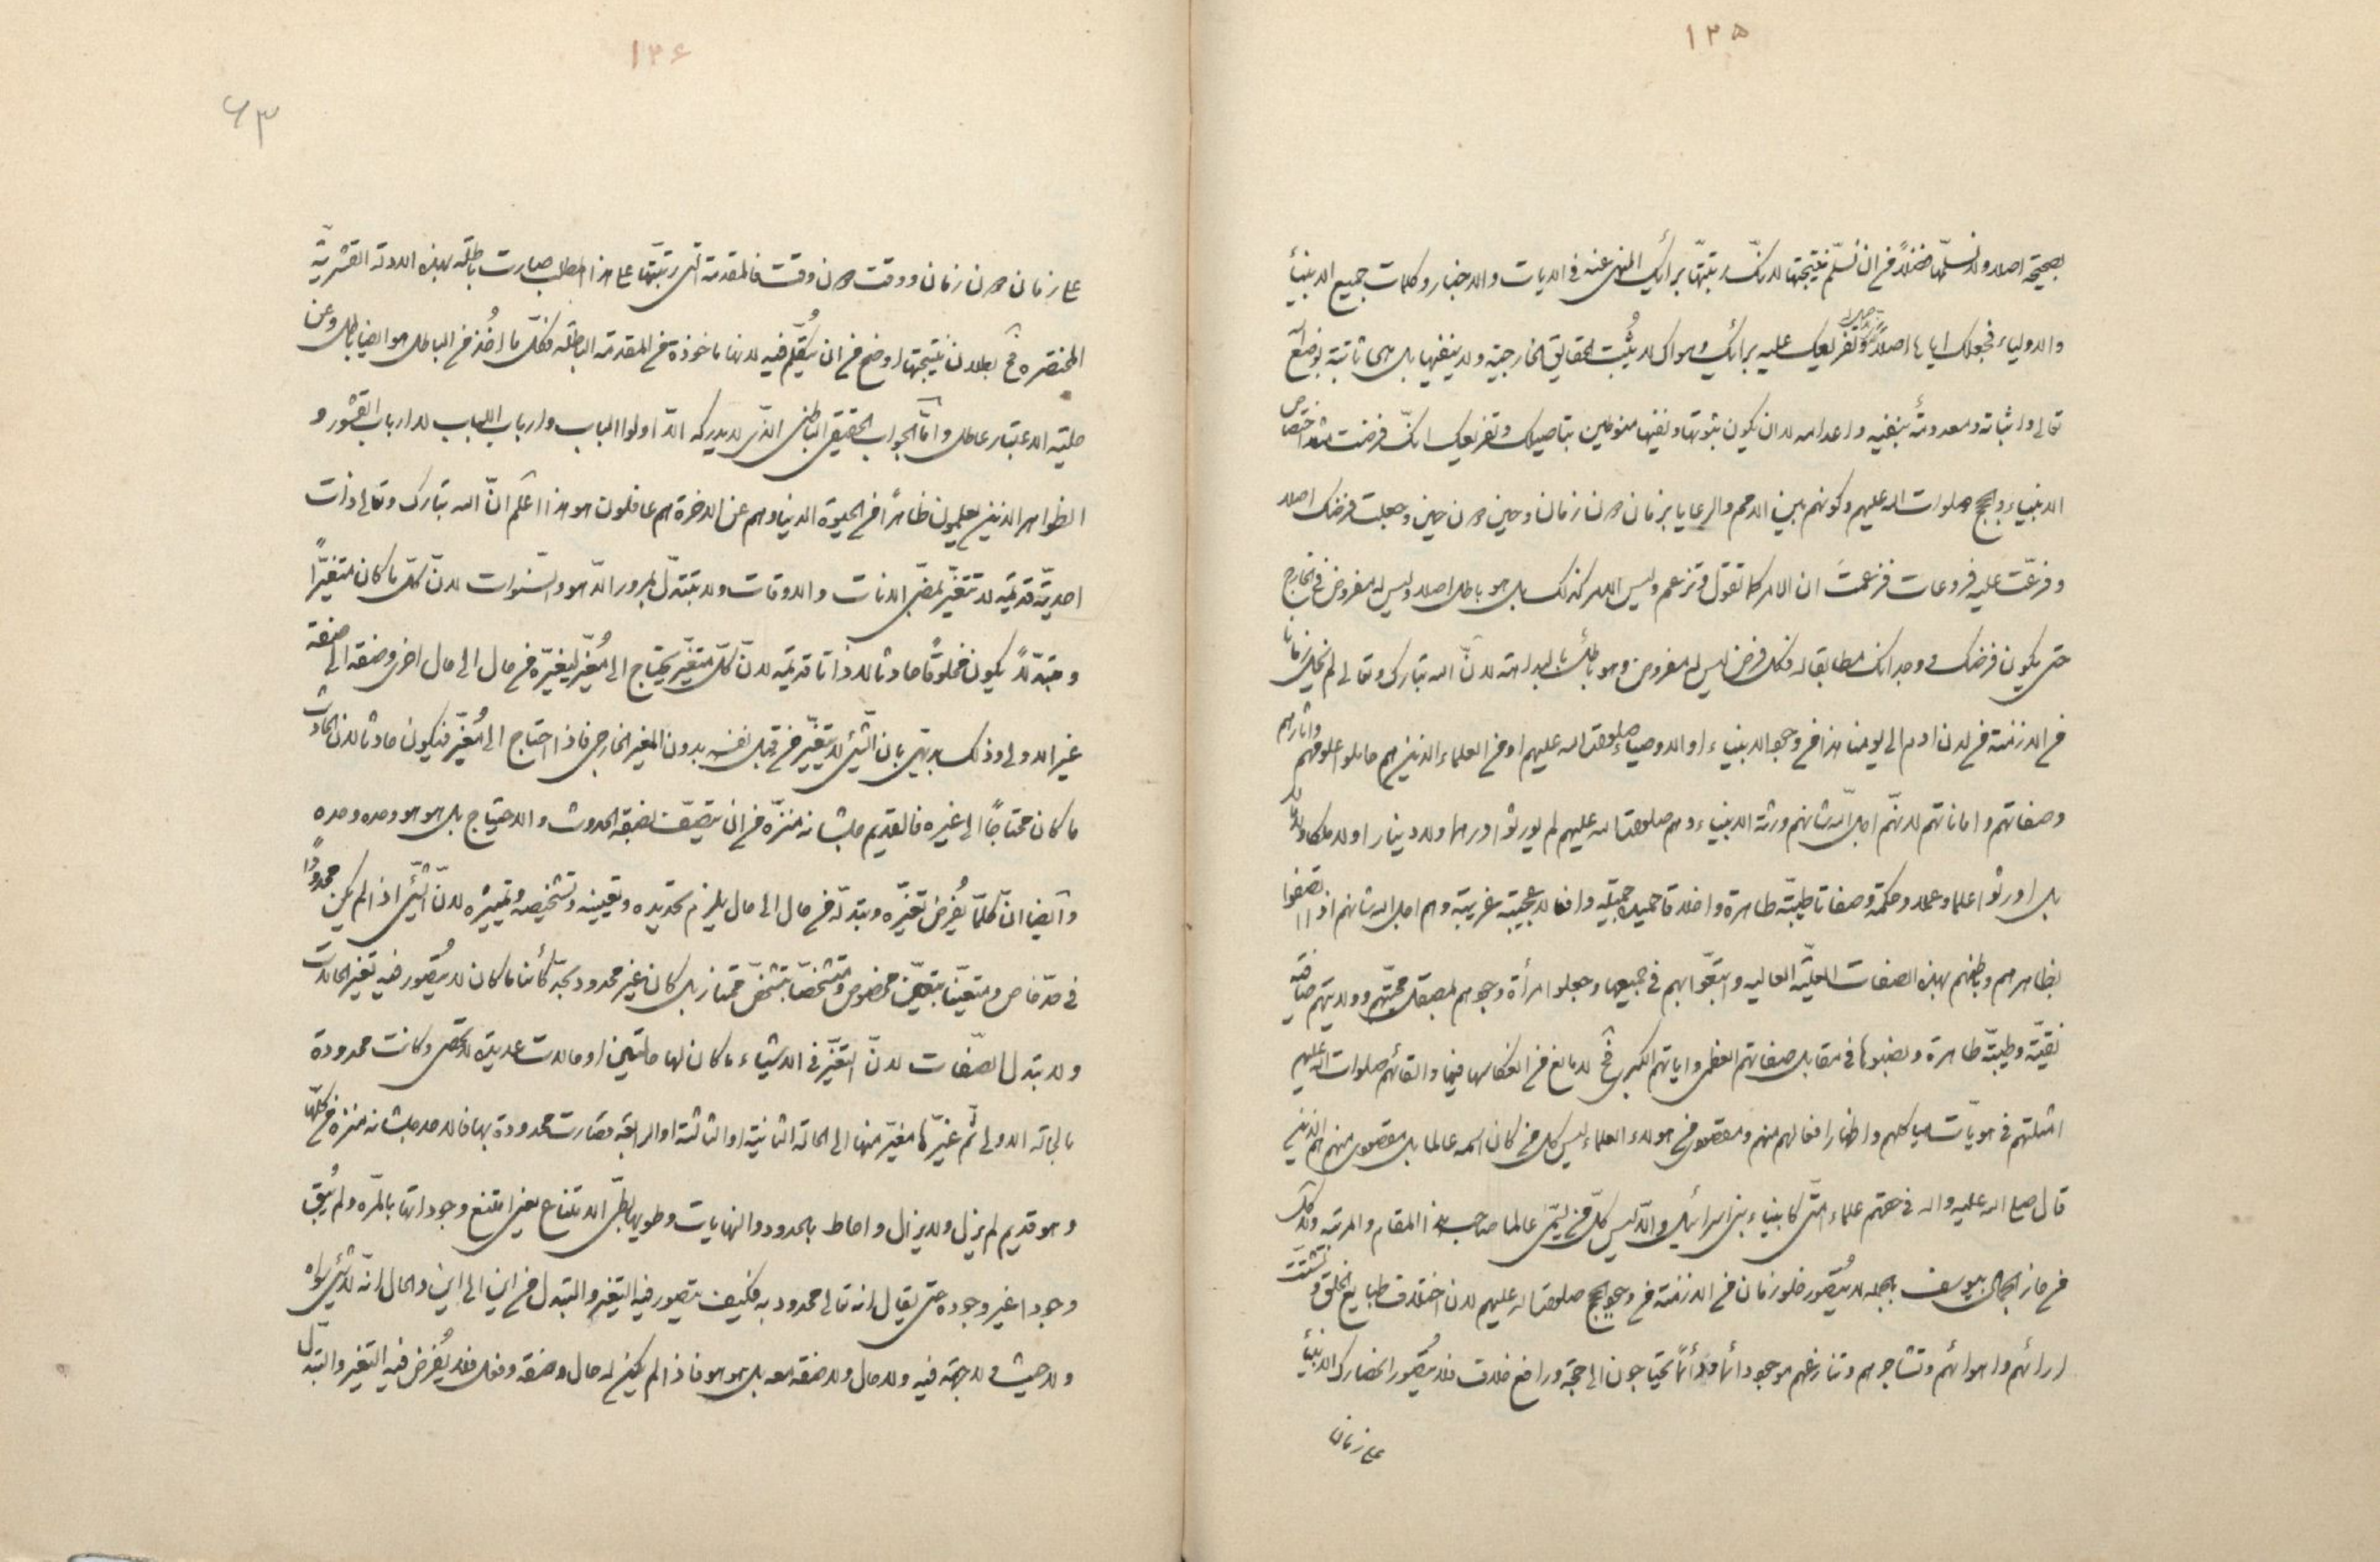 ١٢٥
بصحيحة اصلا ولا نسلمها فضلاً من ان نسلّم نتيجتها لانك رتبتها برأيك المنهى عنه فى الايات والاخبار وكلمات جميع الانبيآء
والاولياء فجعلك اياها اصلاً وتفريعك عليه برائك وهواك لا يثبت الحقايق الخارجية ولا ينفيها بل هى ثابتة بوضع اللّه
تعالى واثباته ومعدومة بنفيه واعدامه لا ان يكون ثبوتها ونفيها منوطين بتاصيلك وتفريعك انك فرضت اختصاص
الانبياء والحجج صلوات اله عليهم وكونهم بين الامم والرعايا بزمان دون زمان وحين دون حين وجعلت فرضك اصلا
وفرعّت عليه فروعات فزعمت ان الامر كما تقول وتزعم وليس الامر كذلك بل هو باطل اصلا وليس له مفروض فى الخارج
حتى يكون فرضك ووجدانك مطابقا له فكل فرض ليس له مفروض وهو باطل بالبداهة لان اله تبارك وتعالى لم يخل زمانا
من الازمنة من لدن ادم الى يومنا هذا من وجود الانبياء او الاوصياء صلوات اله عليهم او من العلماء الذين هم حاملوا علومهم واثارهم
وصفاتهم واماناتهم لانهم اجل اللّه شانهم ورثة الانبياء وهم صلوات اله عليهم لم يورثوا درهما ولا دينارا ولا ملكا
بل اورثوا علما وعملا وحكمة وصفاتا طيبة طاهرة واخلاقا حميدة جميلة وافعالا عجيبة غريبة وهم اجل اله شانهم اذا اتصفوا
بظاهرهم وباطنهم بهذه الصفات العلية العاليه واتبعوا بهم فى جميعها وجعلوا مرأة وجودهم بمصقل محبتهم وولايتهم صافية
نقيّة وطيبة طاهرة ونصبوها فى مقابل صفاتهم العظمى واياتهم الكبرى فح لا مانع من انعكاسها فيها والقائهم صلوات اله عليهم
امثلتهم فى هويّات هياكلهم واظهار افعالهم منهم ومقصود من هولاء العلماء ليس كل من كان اسمه عالما بل مقصودى منهم هم الذين
قال صلى اله عليه واله فى حقهم علماء امتى كانبياء بنى اسرائيل والّا ليس كل من يسمّى عالما صاحب هذا المقام والمرتبة ولا كل
من حاز الجمال بيوسف بالجمله لا يتصور خلو زمان من الازمنة من وجود الحجج صلوات اله عليهم لان اختلاف طبايع الخلق وتشتت
ارائهم واهوائهم وتشاجرهم وتنازعهم موجود دائما ودائما يحتاجون الى حجة ورافع خلاف فلا يتصور انحصارك الانبيآء
على زمان
١٢٦
٦٣
على زمان دون زمان ووقت دون وقت فالمقدمة التى رتبتها على هذا المطلب صارت باطلة بهذه الادلة القشرية
المختصره فح بطلان نتيجتها اوضح من ان يتكلم فيه لانها ماخوذة من المقدمة الباطله فكل ما اخذ من الباطل هو ايضا باطل وعن
حلية الاعتبار عاطل وامّا الجواب الحقيقى الباطنى الذى لا يدركه الّا اولوا الالباب وارباب اللباب لا ارباب القشور و
الظواهر الذين يعلمون ظاهراً من الحيوة الدنيا وهم عن الاخرة هم غافلون هو هذا اعلم انّ اله تبارك وتعالى ذات
احدية قديمة لا تتغير بمضى الانات والاوقات ولا تتبدل بمرور الدهور والسّنوات لانّ كل ما كان متغيراً
ومتبدلاً يكون مخلوقاً حادثا لا ذاتا قديمة لانّ كلّ متغير يحتاج الى مُغيّر ليغيره من حال الى حال اخرى وصفة الى صفة
غير الاولى وذلك بديهى بان الشئ لا يتغير من قبل نفسه بدون المغير الخارجى فاذا احتاج الى مُغيّر فيكون حادثا لان الحادث
ما كان محتاجًا الى غيره فالقديم جل شانه منزّه من ان يتصف بصفة الحدوث والاحتياج بل هو هو وحده وحده
وايضا انّ كلمّا يُفرض تغيّره وتبدله من حال الى حال يلزم تحديده وتعيينه وتشخيصه وتمييزه لانّ الشئ اذا لم يكن محدودًا
فى حدّ خاص ومتعينًا بتعين مخصوص ومتشخصًا بتشخص ممتاز بل كان غير محدود بحدّ كائنا ما كان لا يتصور فيه تغير الحالات
ولا تبدل الصفات لانّ التغيّر فى الاشياء ما كان لها حالتين او حالات عديدة لا تحصى وكانت محدودة
بالحالة الاولى ثم غيّرها مغيّر منها الى الحالة الثانية او الثالثة او الرابعة فصارت محدودة بها فالاحد جل شانه منزه من كلها
وهو قديم لم يزل ولا يزال واحاط بالحدود والنهايات وطويها بطىّ الامتناع يعنى امتنع وجوداتها بالمرّه ولم يُبق
وجودا غير وجوده حتى يقال انه تعالى محدود به فكيف يتصور فيه التغير والتبدل من اين الى اين والحال انه لا شئ سواه
ولا حيث ولا جهة فيه ولا حال ولا صفة معه بل هو هو فاذا لم يكن له حال وصفة وفعل فلا يُفرض فيه التغير والتبدل